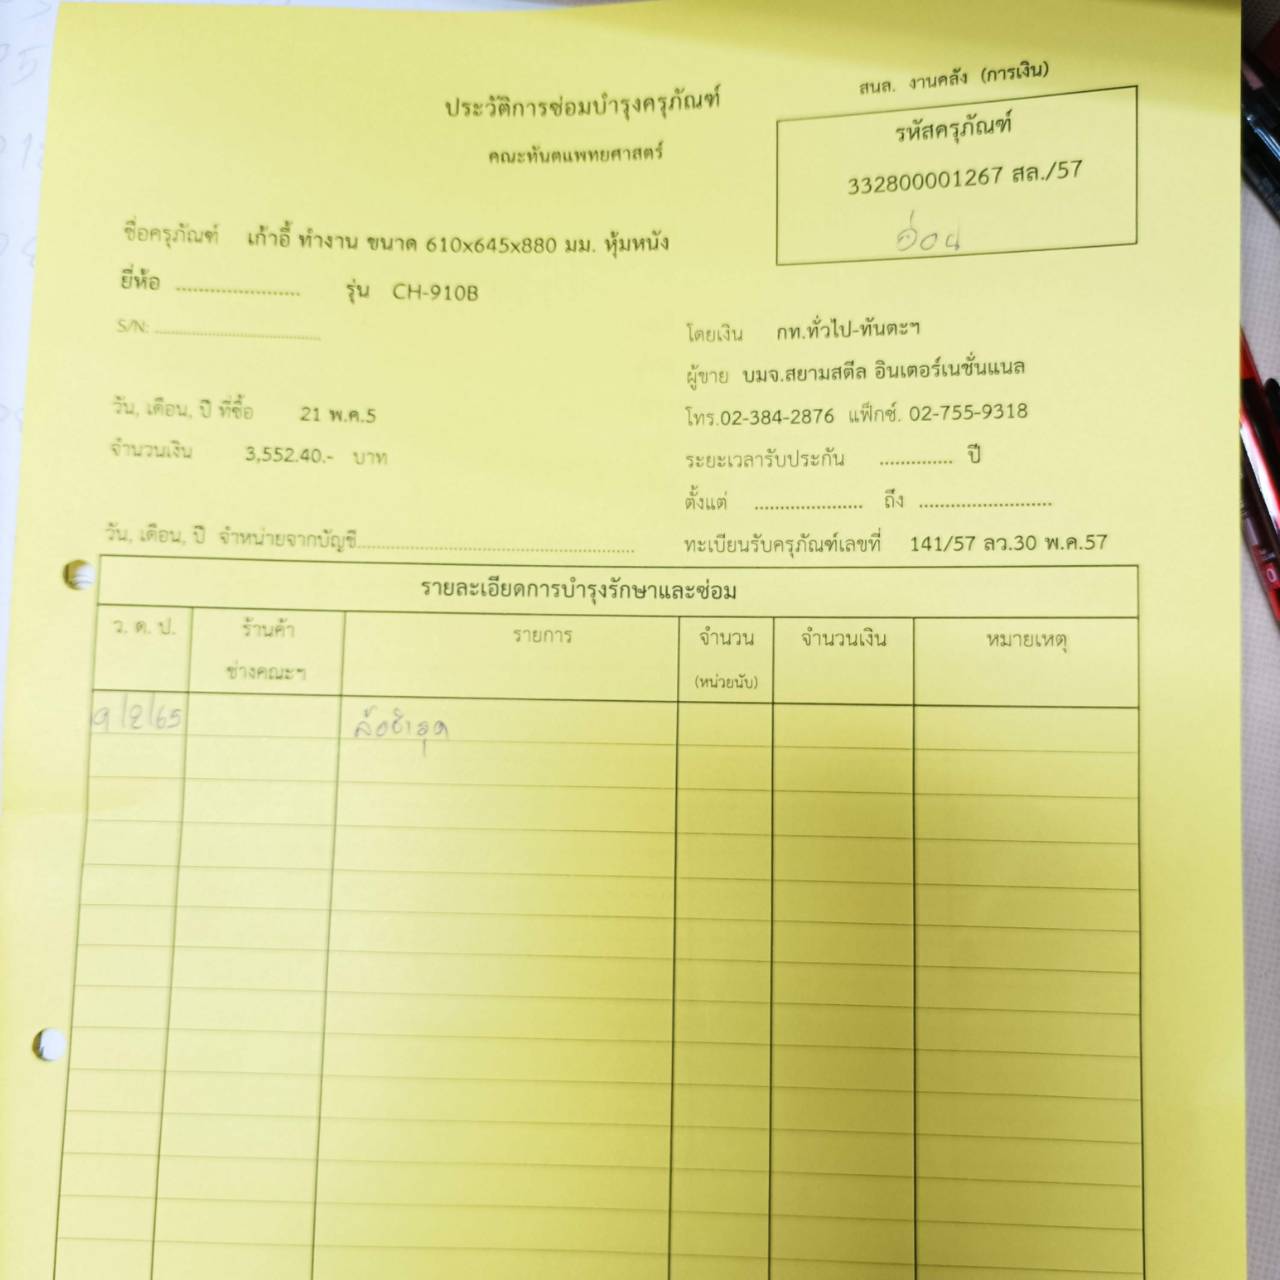 สนล. งานคลัง (การเงิน)
ประวัติการซ่อมบำรุงครุภัณฑ์
คณะทันตแพทยศาสตร์
รหัสครุภัณฑ์
332800001267 สล./57
อ่อน
ชื่อครุภัณฑ์ เก้าอี้ ทำงาน ขนาด 610x645x880 มม. หุ้มหนัง
ยี่ห้อ ...................... รุ่น CH-910B
S/N: ..............................
โดยเงิน กท.ทั่วไป-ทันตะฯ
ผู้ขาย บมจ.สยามสตีล อินเตอร์เนชั่นแนล
วัน, เดือน, ปี ที่ซื้อ 21 พ.ค.5
โทร.02-384-2876 แฟ็กซ์. 02-755-9318
จำนวนเงิน 3,552.40.- บาท
ระยะเวลารับประกัน .............. ปี
ตั้งแต่ ..................... ถึง .........................
วัน, เดือน, ปี จำหน่ายจากบัญชี..................................................
ทะเบียนรับครุภัณฑ์เลขที่ 141/57 ลว.30 พ.ค.57
รายละเอียดการบำรุงรักษาและซ่อม
ว. ด. ป. ร้านค้า รายการ จำนวน จำนวนเงิน หมายเหตุ
ช่างคณะฯ (หน่วยนับ)
9/2/65 ล้อชำรุด